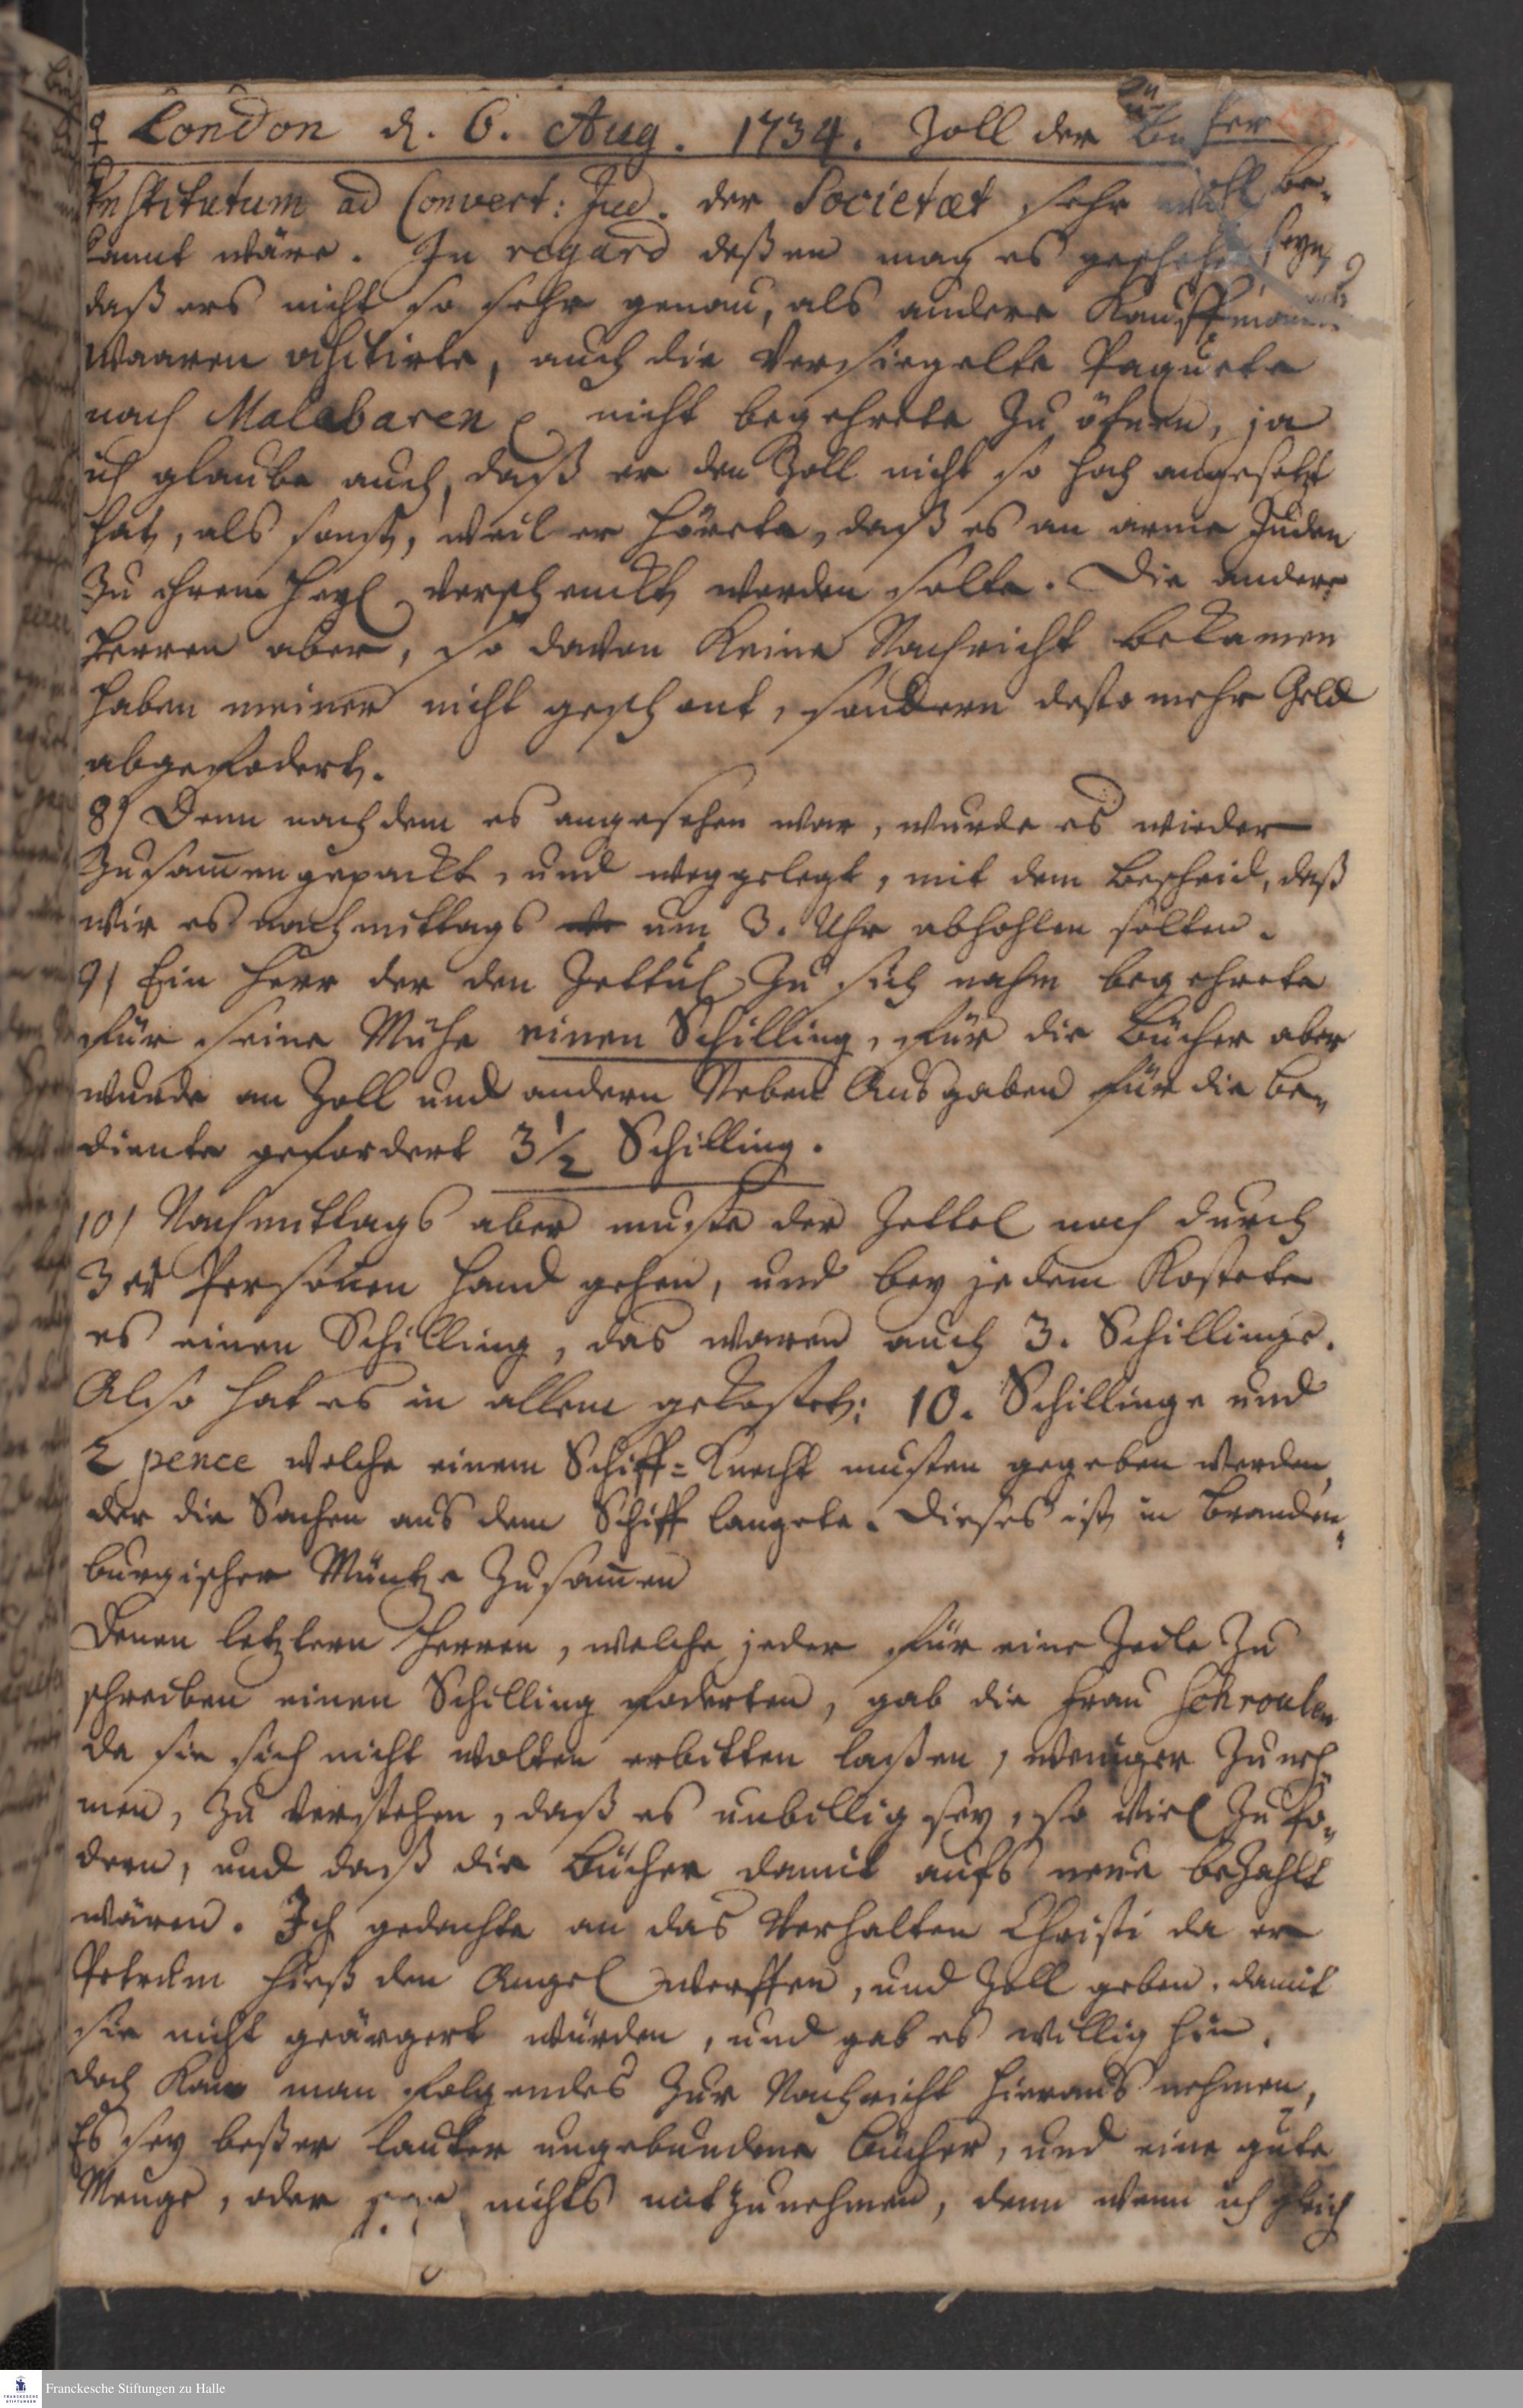 ♀ London d. 6. Aug. 1734. Zoll der Bücher
Institutum ad Convert: Jud. der Societæt sehr wohl be-
kannt wäre. In regard deßen mag es geschehen seyn,
daß ers nicht so sehr genau, als andere Kauffmanns
Waaren visitirte, auch die versiegelte Paquete
nach Malabaren nicht begehrete zu öfnen, ja
ich glaube auch, daß er den Zoll nicht so hoch angesetzt
hat, als sonst, weil er hörete, daß es an arme Juden
zu ihrem Heyl verschenckt werden solte. Die andere
Herren aber, so davon keine Nachricht bekamen
haben meiner nicht geschont, sondern desto mehr Geld
abgefodert.
8) Denn nachdem es angesehen war, wurde es wieder
zusam̄engepackt, und weggelegt, mit dem Bescheid, daß
wir es nachmittags um 3. Uhr abhohlen solten.
9) Ein Herr der den Zettul zu sich nahm begehrete
für seine Mühe einen Schilling, für die Bücher aber
wurde an Zoll und andern Neben Ausgaben für die Be-
diente gefordert 3 1/2 Schilling.
10) Nachmittags aber muste der Zettel noch durch
3er Personen Hand gehen, und bey jedem kostete
es einen Schilling, das waren auch 3. Schillinge.
Also hat es in allem gekostet: 10. Schillinge und
2 pence welche einem Schiff=Knecht musten gegeben werden,
der die Sachen aus dem Schiff langete. Dieses ist in Branden-
burgischer Müntze zusam̄en
Denen letztern Herren, welche jeder für eine Zeile zu
schreiben einen Schilling foderten, gab die Frau
da sie sich nicht wolten erbitten laßen, weniger zu neh-
men, zu verstehen, daß es unbillig sey, so viel zu fo-
dern, und daß die Bücher damit aufs neue bezahlt
wären. Ich gedachte an das Verhalten Christi da er
Petrum hieß den Angel werffen, und Zoll geben, damit
sie nicht geärgert würden, und gab es willig hin.
Doch kan man folgendes zur Nachricht hieraus nehmen,
Es sey beßer lauter ungebundene Bücher, und eine gute
Menge, oder gar nichts mitzunehmen, denn wenn ich gleich
Franckesche Stiftungen zu Halle